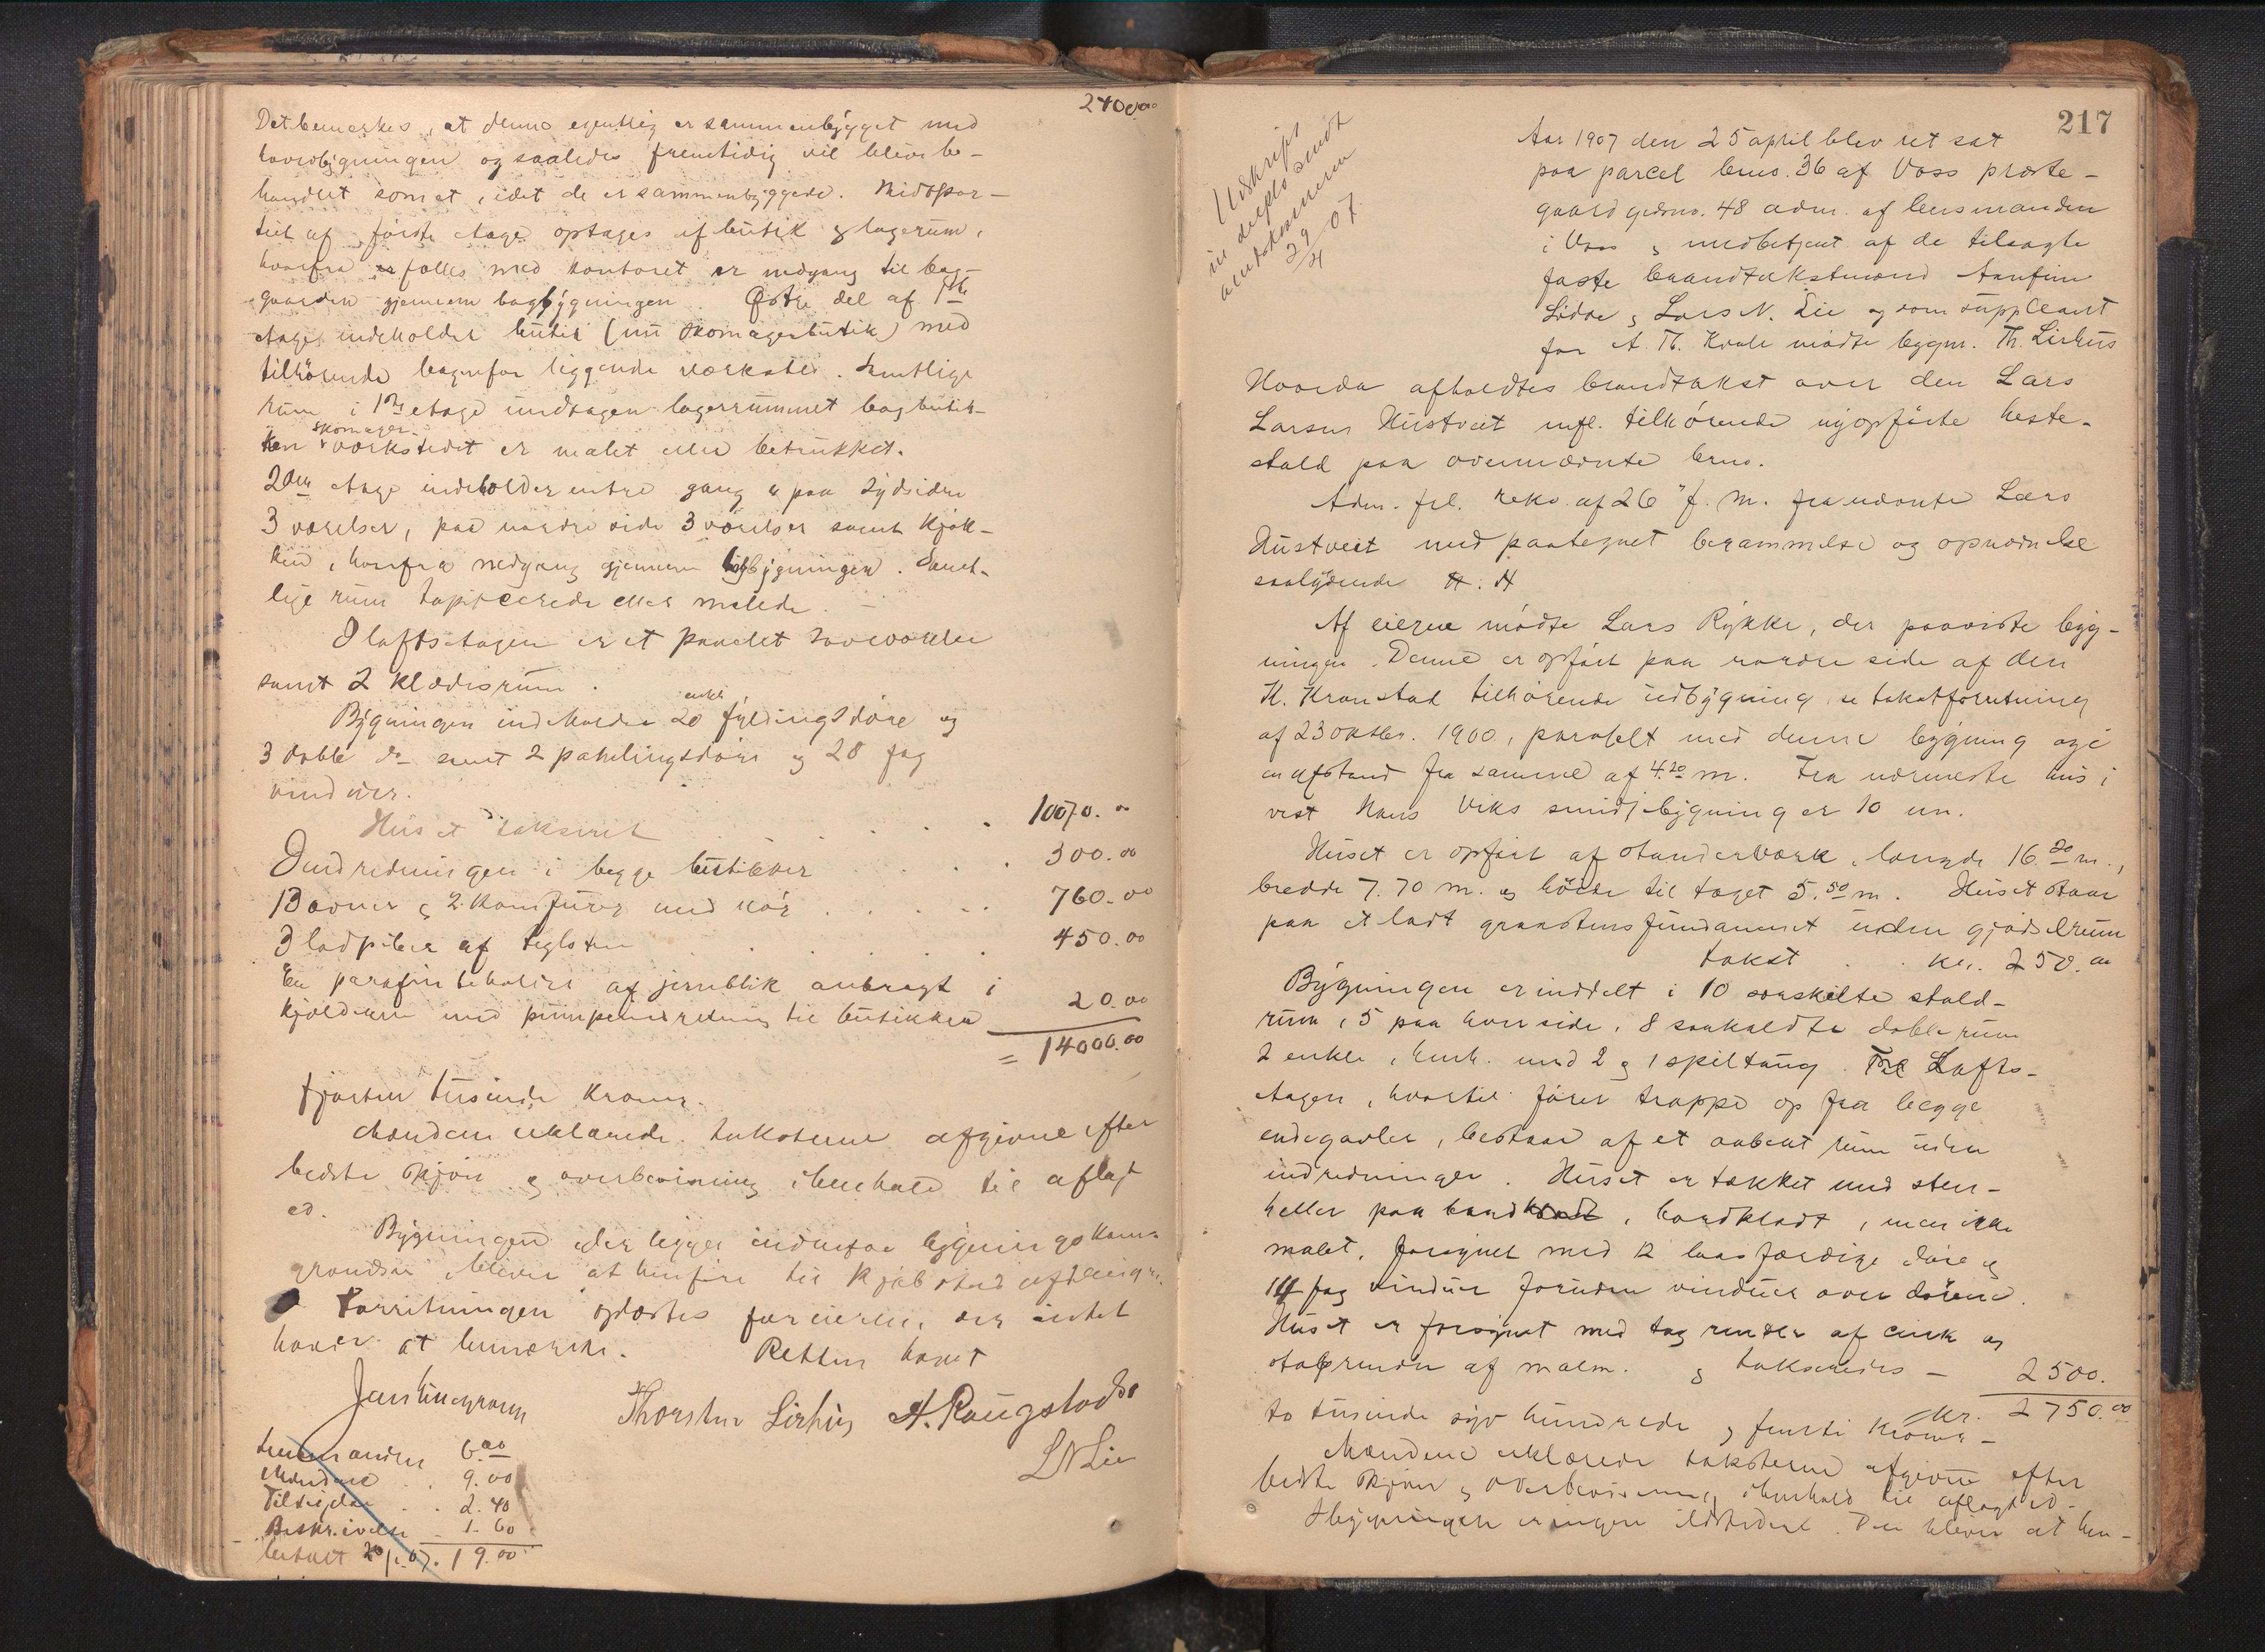 2400.00
Det bemærkes, at denne egentlig er sammenbygget med
hovedbygningen og saaledes fremtidig vil blive be-
handlet som et, idet de er sammenbyggede. Midtpar-
tiet af første etage optages af butik & lagerum,
hvorfra er fælles med kontoret er nedgang til bag-
gaarden gjennem bagbygningen. Østre del af 1ste
etage indeholder butik (nu skomagerbutik) med
tilhørende bagenfor liggende værksted. Samtlige
rum i 1ste etage undtagen lagerrummet bag butik-
ken & skomagerværkstedet er malet eller betrukket.
2den etage indeholder entre gang & paa sydsiden
3 værelser, paa nordre side 3 værelser samt kjøk-
ken, hvorfra nedgang gjennem bagbygningen. Samt-
lige rum tapiceerede eller malede.
I loftsetagen er et panelet soveværelse
samt 2 klædesrum.
Bygningen indeholder 20 enkle fyldingsdøre og
3 doble do samt 2 panelingsdøre og 28 fag
vinduer.
Huset takseret 10070.00
Indredningen i begge butikker 300.00
13 ovner & 2 komfurer med rør 760.00
3 ladpiber af teglsten 450.00
En parafinbeholder af jernblik anbragt i
kjelderen med pumpeindretning til butikken 20.00
= 14000.00
fjorten tusinde kroner.
Mændene erklærede taksterne afgivne efter
bedste skjøn & overbevisning i henhold til aflagt
ed.
Bygningen der ligger indenfor bygningskom.
grændse, bliver at henføre til kjøbstadafdeling.
Forretningen oplæstes for eieren, der intet
havde at bemærke. Retten hævet
Thorsten Lirhus A. Raugstad
L N Lie
Lensmanden 6.00
Mændene 9.00
Tilsigelse 2.40
Beskrivelse 1.60
betalt 19.00
217
Udskrift
in duplo sendt
29/4 07.
Aar 1907 den 25 april blev ret sat
paa parcel brno. 36 af Voss præste-
gaard gardsno. 48 adm. af lensmanden
i Voss & medbetjent af de tilsagte
faste brandtakstmænd Aanfinn
Lidve & Lars N. Lie og som suppleant
for A. Th. Kvale mødte bygm. Th. Lirhus
Hvorda afholdtes brandtakst over den Lars
Larsen Hustveit mfl. tilhørende nyopførte heste-
stald paa ovennævnte brno.
Adm. frl. rekv. af 26 f. m. fra nævnte Lars
Hustveit med paategnet berammelse og opnævnelse
saalydende
Af eierne mødte Lars Rykke, der paaviste byg-
ningen. Denne er opført paa nordre side af den
H. Kronstad tilhørende udbygning, se takstforretning
af 23 oktbr. 1900, paralelt med denne bygning og i
en afstand fra samme af 4.20 m. Fra nærmeste hus i
vest Hans Viks smidjebygning er 10 m.
Huset er opført af stenderværk, længde 16.20 m.,
bredde 7.70 m. og høide til taget 5.50 m. Huset staar
paa et ladt graastensfundament uden gjødselrum
takst kr. 250.00
Bygningen er inddelt i 10 særskilte stald-
rum, 5 paa hver side, 8 saakaldte doble rum
2 enkle, henh. med 2 & 1 spiltaug. Lofts-
etagen, hvortil fører trappe op fra begge
endegavler, bestaar af et aabent rum uden
indredninger. Huset er tækket med sten-
heller paa bord, bordklædt, men ikke
malet. Forsynet med 12 laasfærdige døre &
14 fag vinduer foruden vinduer over dørene.
Huset er forsynet med tagrender af cink og
stalprender af malm. & takseredes – 2500.
Kr. 2750.00
to tusinde syv hundrede & femti kroner –
Mændene erklærede taksterne afgivne efter
bedste skjøn & overbevisning i henhold til aflagt ed.
I bygningen er ingen ildsteder. Den bliver at hen-